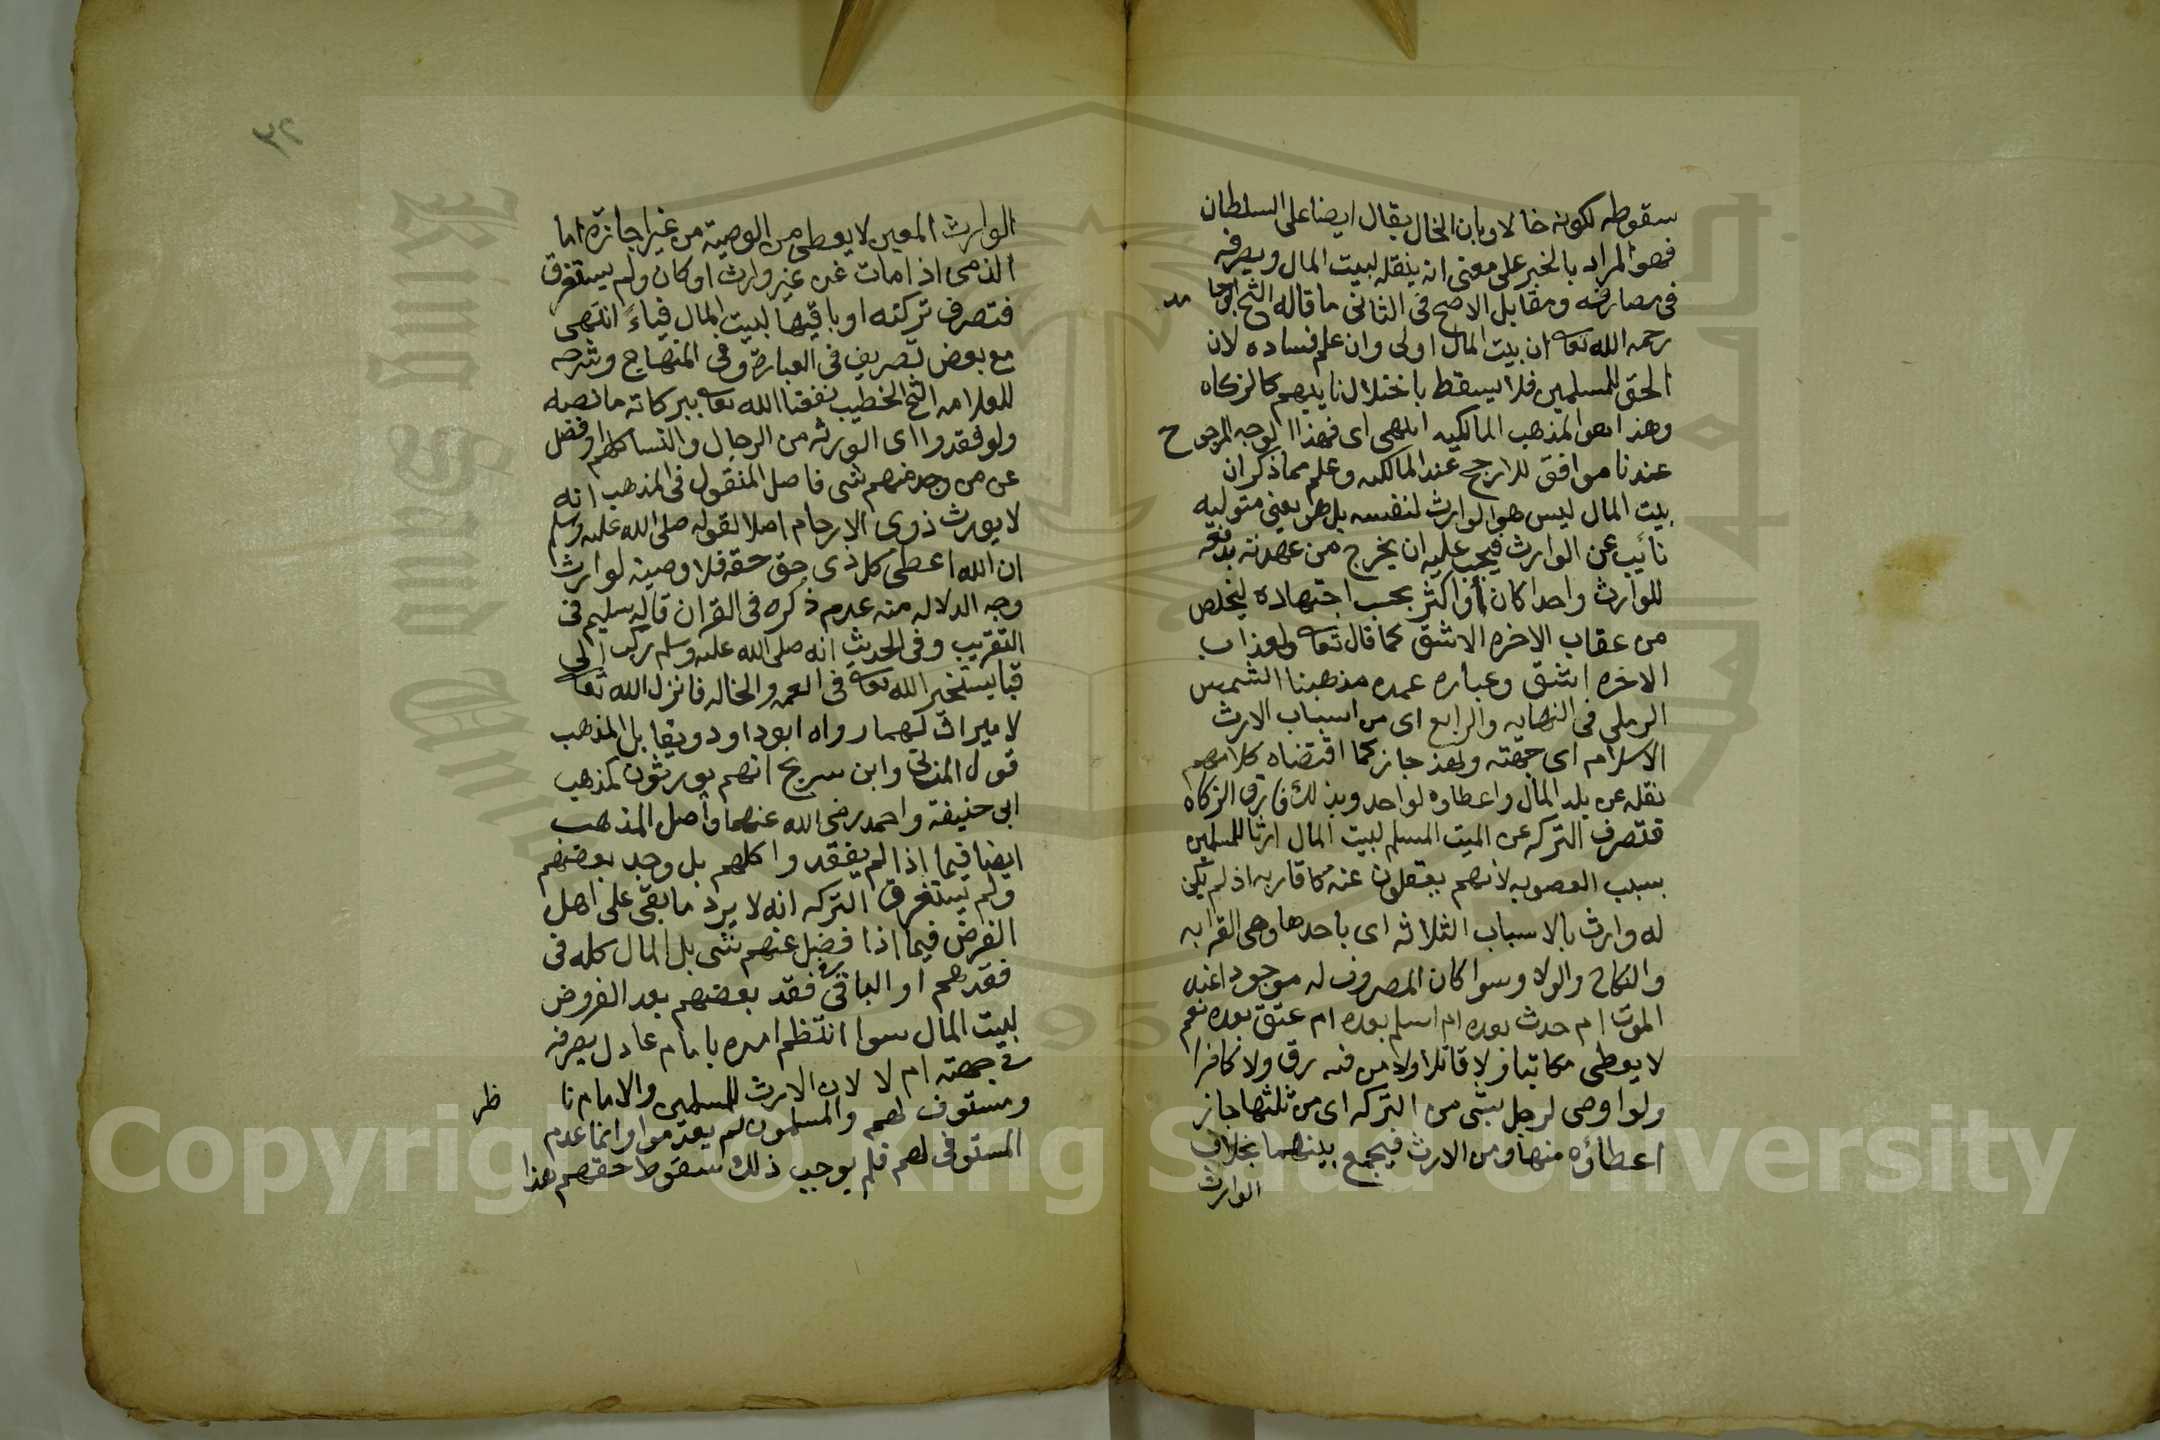 سقوطه لكونه خالا وبان الخال يقال ايضا على السلطان
فهو المراد بالخبر على معنى انه ينقله لبيت المال ويصرفه
فى مصارفه ومقابل الاصح فى الثانى ما قاله الشيخ ابو حامد
رحمه الله تعا ان بيت المال اولى وان علم فساده لان
الحق للمسلمين فلا يسقط باختلال نايبهم كالزكاه
وهذا هو المذهب المالكيه انتهى اى فهذا الوجه المرجوح
عندنا موافق للارجح عند المالكيه وعلم مما ذكر ان
بيت المال ليس هو الوارث لنفسه بل هو يعنى متوليه
نائب عن الوارث فيجب عليه ان يخرج من عهدته بدفعه
للوارث واحدا كان أو اكثر بحسب اجتهاده ليخلص
من عقاب الاخره الاشق كما قال تعا ولعذاب
الاخره اشق وعباره عمده مذهبنا الشمس
الرملي فى النهايه والرابع اى من اسباب الارث
الاسلام اى جهته ولهذ جاز كما اقتضاه كلامهم
نقله عن بلد المال واعطاوه لواحد وبذلك فارق الزكاه
فتصرف التركه عن الميت المسلم لبيت المال ارثا للمسلمين
بسبب العصوبه لانهم يعقلون عنه كاقاربه اذ لم يكن
له وارث بالاسباب الثلاثه اى باحدها وهى القرابه
والنكاح والولا وسوا كان المصروف له موجودا عند
الموت ام حدث بعده ام اسلم بعده ام عتق بعده نعم
لا يعطى مكاتبا ولا قاتلا ولا من فيه رق ولا كافرا
ولو اوصى لرجل بشى من التركه اى من ثلثها جاز
اعطاؤه منها ومن الارث فيجمع بينهما بخلاف
الوارث
٣٢
الوارث المعين لا يعطى من الوصية من غير اجازة اما
الذمى اذا مات عن غير وارث او كان ولم يستغرق
فتصرف تركته او باقيها لبيت المال فياء انتهى
مع بعض تصريف فى العبارة وفى المنهاج وشرحه
للعلامه الشيخ الخطيب نفعنا الله تعا ببركاته ما نصه
ولو فقدوا اى الورثه من الرجال والنسا كلهم او فضل
عن من وجد منهم شى فاصل المنقول فى المذهب انه
لا يورث ذوى الارحام اصلا لقوله صلى الله عليه وسلم
ان الله اعطى كل ذى حق حقه فلا وصية لوارث
وجه الدلاله منه عدم ذكره فى القران قاله سليم فى
التقريب وفى الحديث انه صلى الله عليه وسلم ركب الى
قبا يستخير الله تعا فى العمه والخاله فانزل الله تعا
لا ميراث لهما رواه ابو داود ويقابل المذهب
قول المزنى وابن سريج انهم يورثون كمذهب
ابى حنيفة واحمد رضى الله عنهما واصل المذهب
ايضا فيما اذا لم يفقدوا كلهم بل وجد بعضهم
ولم يستغرق التركه انه لا يرد ما بقى على اهل
الفرض فيما اذا فضل عنهم شى بل المال كله فى
فقدهم او الباقى فى فقد بعضهم بعد الفروض
لبيت المال سوا انتظم امره بامام عادل يصرفه
فى جهته ام لا لان الارث للمسلمين والامام ناظر
ومستوف لهم والمسلمون لم يعدموا وانما عدم
المستوفى لهم فلم يوجب ذلك سقوط حقهم هذا
King Saud University
1957
Copyright © King Saud University